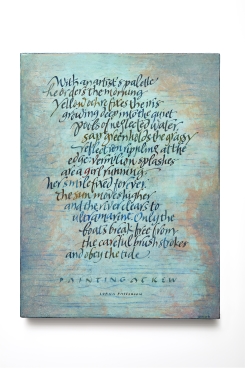 With an artist's palette
he orders the morning
Yellow ochre fixes the iris
growing deep into the quiet
pools of neglected water,
sap green holds the grassy
reflection rippling at the
edge. vermilion splashes
are a girl running
her smile fixed forever.
the sun moves higher
and the river clears to
ultramarine. Only the
boats break free from
the careful brush strokes
and obey the tide
PAINTING AT KEW